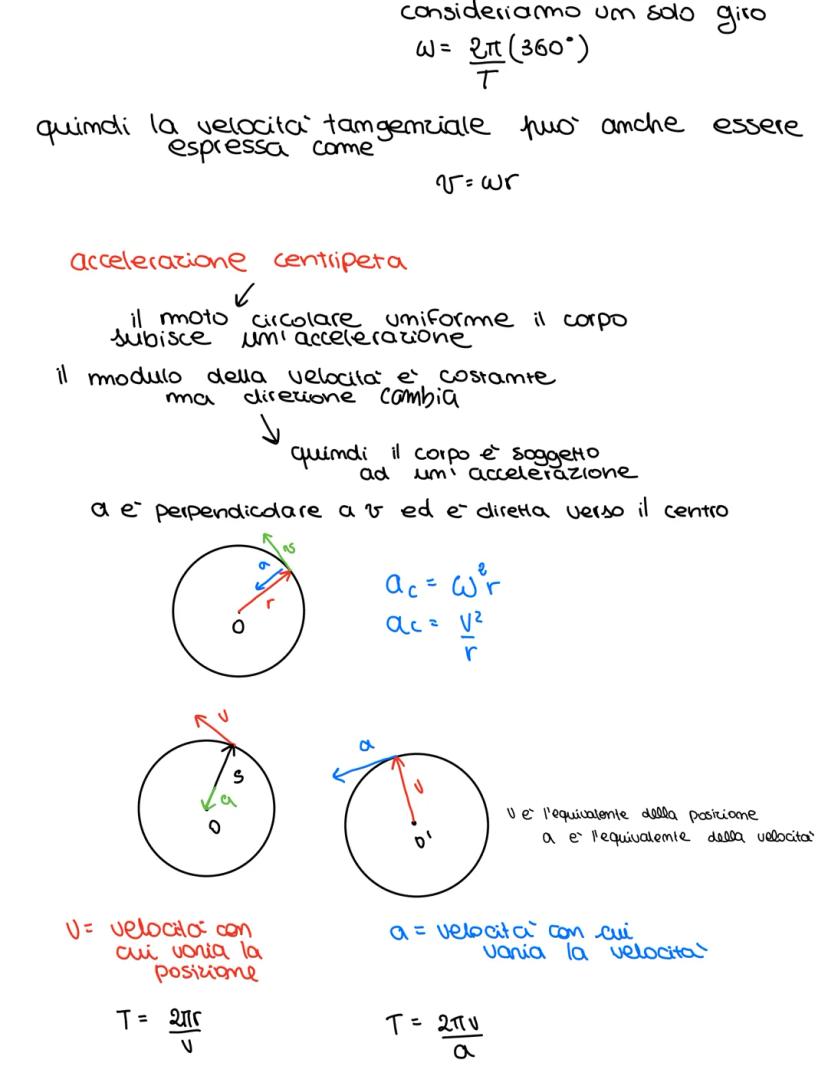 consideriamo un solo giro
ω = 2π (360°)
T
quindi la velocità tangenziale può anche essere
espressa come
v = ωr
accelerazione centripeta
il moto circolare uniforme il corpo
subisce un'accelerazione
il modulo della velocità è costante
ma direzione cambia
quindi il corpo è soggetto
ad un'accelerazione
a è perpendicolare a v ed è diretta verso il centro
v
a
r
O
ac = ω²r
ac = v²
r
v
s
a
O
a
v
O'
v è l'equivalente della posizione
a è l'equivalente della velocità
v = velocità con
cui varia la
posizione
a = velocità con cui
varia la velocità
T = 2πr
v
T = 2πv
a